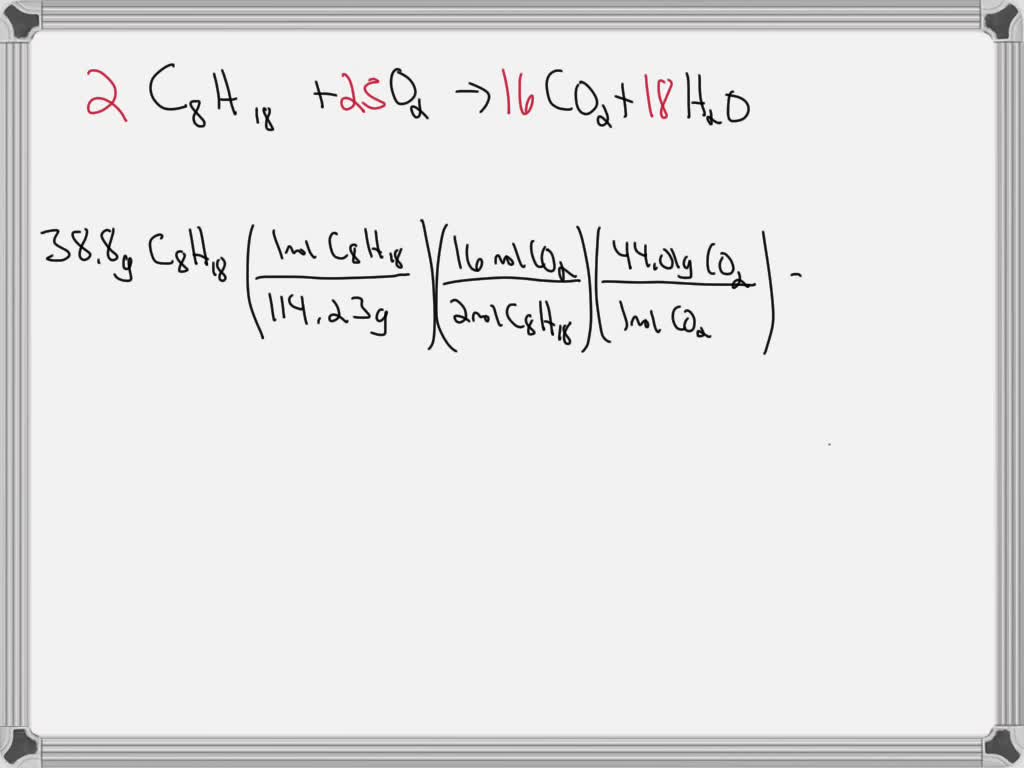 2 C₈H₁₈ + 25 O₂ → 16 CO₂ + 18 H₂O
38.8g C₈H₁₈ (1 mol C₈H₁₈ / 114.23g)(16 mol CO₂ / 2 mol C₈H₁₈)(44.01g CO₂ / 1 mol CO₂) -